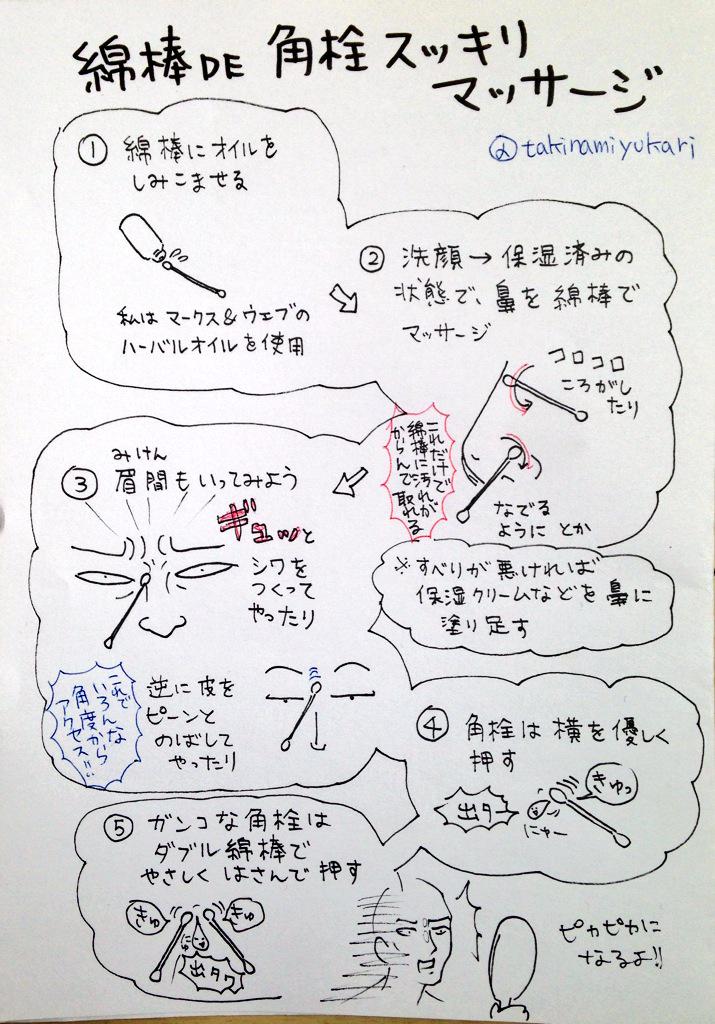 綿棒DE 角栓スッキリ
マッサージ
@takinamiyukari
① 綿棒にオイルを
しみこませる
私は マークス&ウェブの
ハーバルオイルを使用
② 洗顔→保湿済みの
状態で、鼻を綿棒で
マッサージ
コロコロ
ころがし
たり
なでる
ようにとか
これだけで
綿棒に汚れが
からんで取れる
※すべりが悪ければ
保湿クリームなどを鼻に
塗り足す
みけん
③ 眉間もいってみよう
ギュッと
シワを
つくって
やったり
逆に皮を
ピーンと
のばして
やったり
これで
いろんな
角度から
アクセス!!
④ 角栓は横を優しく
押す
きゅっ
出タァ
にゅー
⑤ ガンコな角栓は
ダブル綿棒で
やさしくはさんで押す
きゅ
きゅ
にゅ
出タワ
ピカピカに
なるよ!!